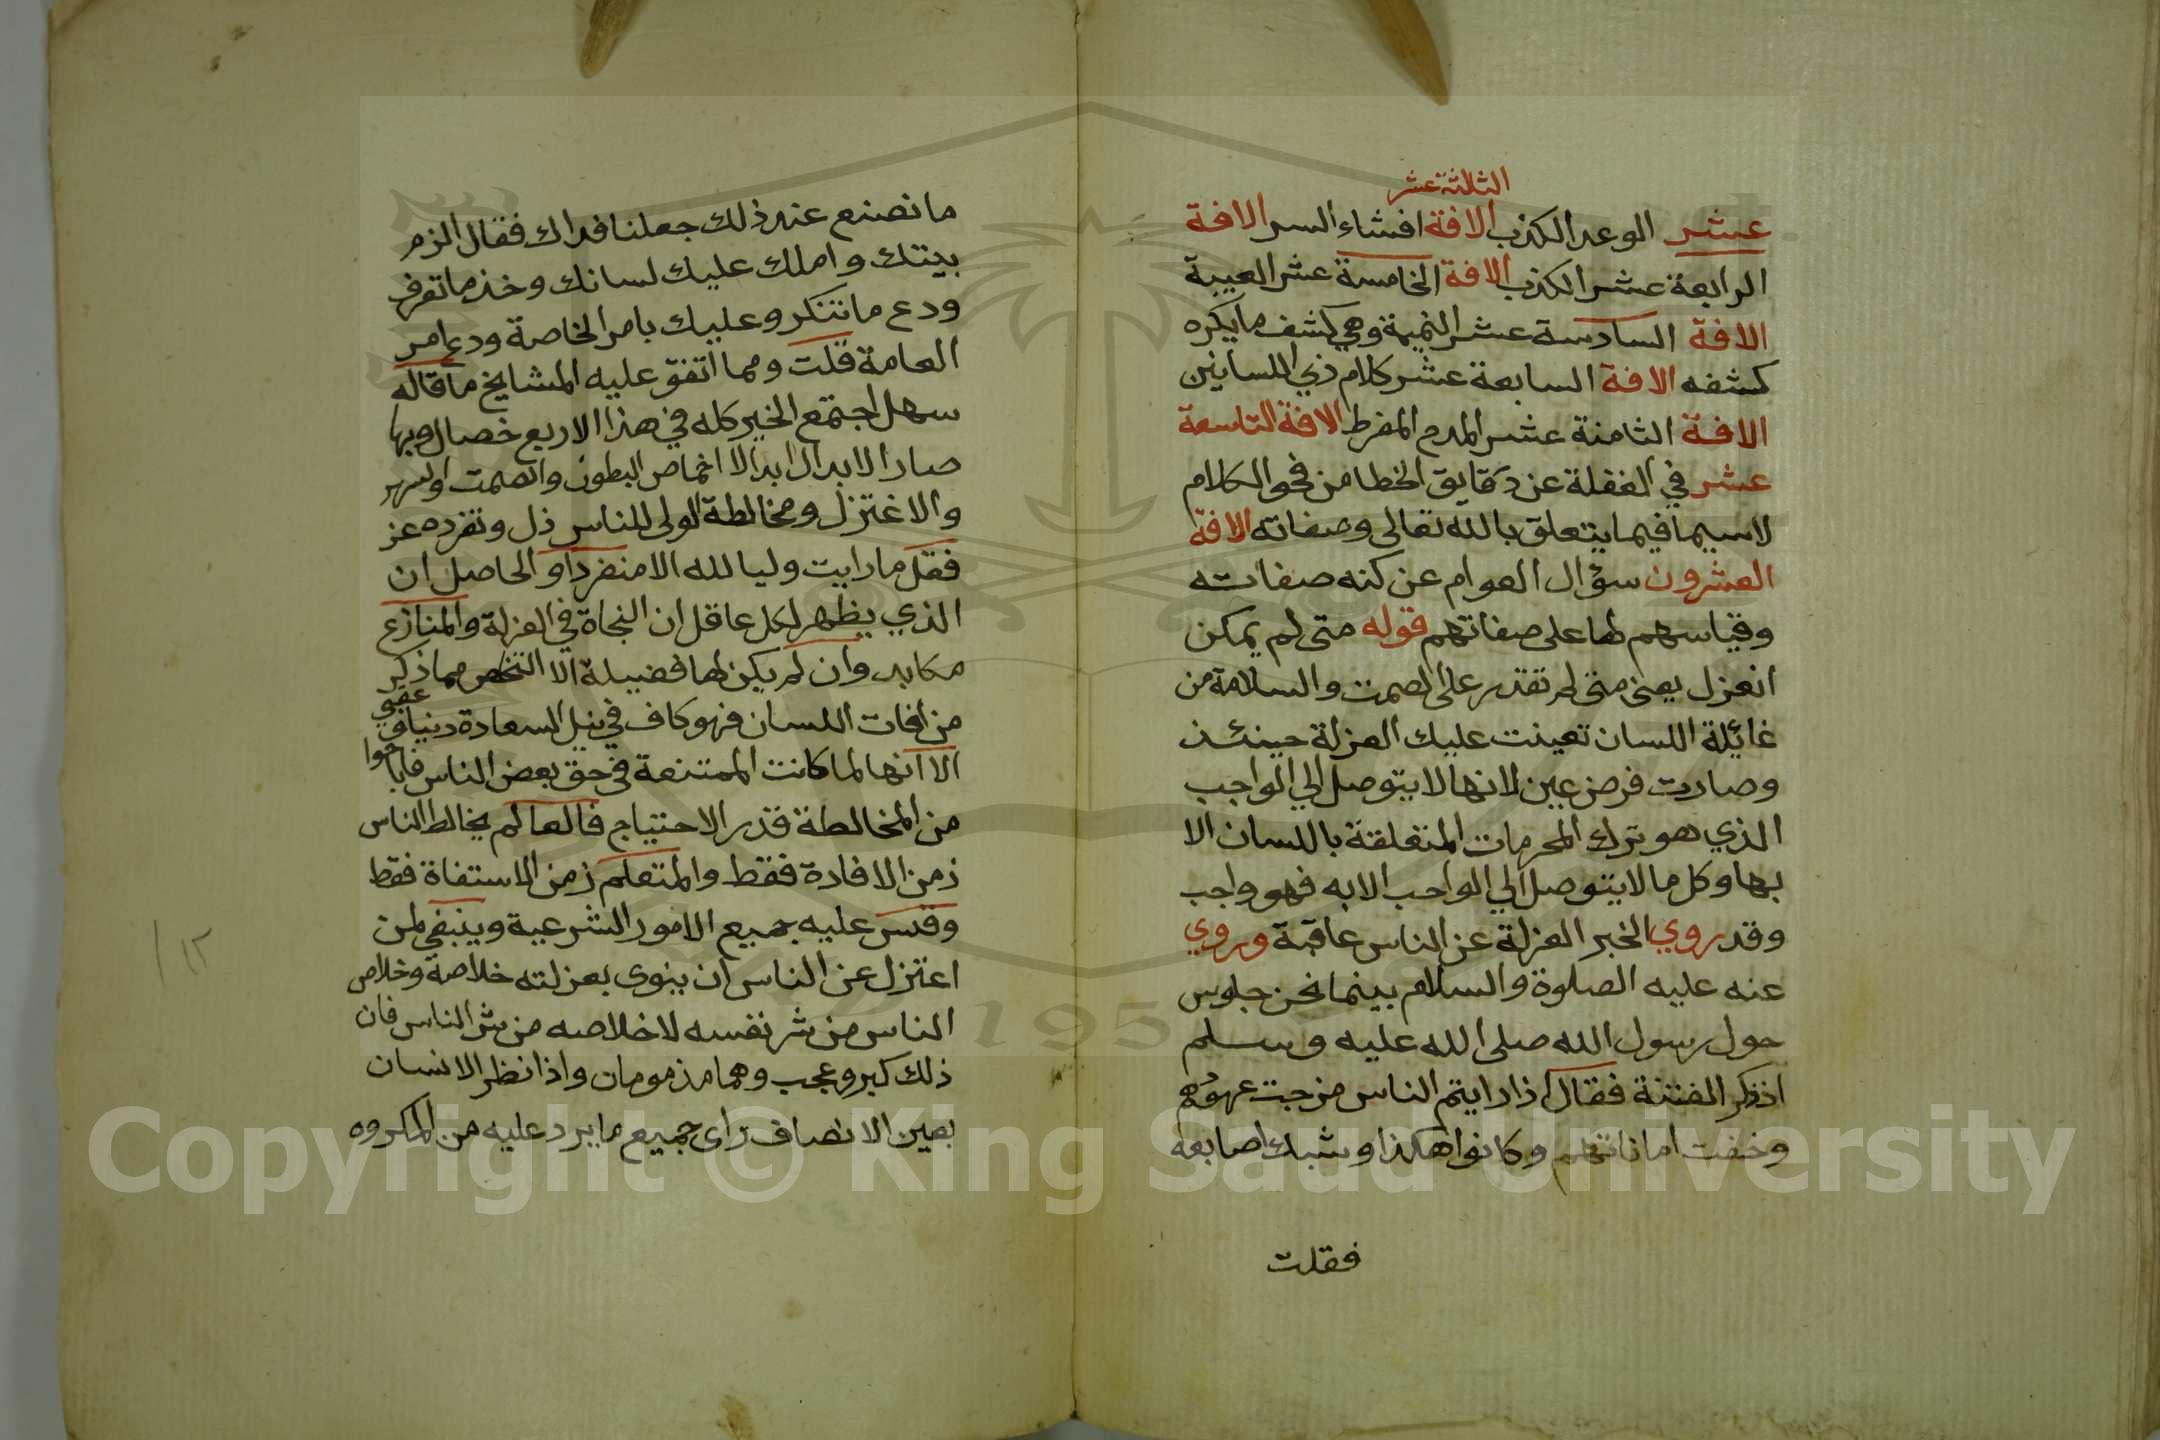 الثلثة عشر
عشر الوعد الكذب الافة افشاء السر الافة
الرابعة عشر الكذب الافة الخامسة عشر الغيبة
الافة السادسة عشر النميمة وهي كشف ما يكره
كشفه الافة السابعة عشر كلام ذي اللسانين
الافة الثامنة عشر المدح المفرط الافة التاسعة
عشر في الغفلة عن دقايق الخطا من فحو الكلام
لاسيما فيما يتعلق بالله تعالى وصفاته الافة
العشرون سؤال العوام عن كنه صفاته
وقياسهم لها على صفاتهم قوله متى لم يمكن
انعزل يعني متى لم تقدر على الصمت والسلامة من
غائلة اللسان تعينت عليك العزلة حينئذ
وصارت فرض عين لانها لا يتوصل الي الواجب
الذي هو ترك المحرمات المتعلقة باللسان الا
بها وكل ما لا يتوصل الي الواجب الا به فهو واجب
وقد روي الخبر العزلة عن الناس عافية وروي
عنه عليه الصلوة والسلام بينما نحن جلوس
حول رسول الله صلى الله عليه وسلم
اذ ذكر الفتنة فقال اذا رايتم الناس مزجت عهودهم
وخفت اماناتهم وكانوا هكذا وشبك اصابعه
فقلت
ما نصنع عند ذلك جعلنا فداك فقال الزم
بيتك واملك عليك لسانك وخذ ما تعرف
ودع ما تنكر وعليك بامر الخاصة ودع امر
العامة قلت ومما اتفق عليه المشايخ ما قاله
سهل اجتمع الخير كله في هذا الاربع خصال وبها
صار الابدال ابدالا اخماص البطون والصمت والسهر
والاعتزل ومخالطة الولي للناس ذل وتفرده عز
فقل ما رايت وليا لله الا منفردا والحاصل ان
الذي يظهر لكل عاقل ان النجاة في العزلة والمنازع
مكابد وان لم يكن لها فضيلة الا التخلص مما ذكر
من افات اللسان فهو كاف في نيل السعادة دنيا و
عقبي
الا انها لما كانت الممتنعة في حق بعض الناس فاباحوا
من المخالطة قدر الاحتياج فالعالم يخالط الناس
زمن الافادة فقط والمتعلم زمن الاستفاة فقط
وقس عليه جميع الامور الشرعية وينبغي لمن
اعتزل عن الناس ان ينوى بعزلته خلاصة وخلاص
الناس من شر نفسه لا خلاصه من شر الناس فان
ذلك كبر وعجب وهما مذمومان واذا نظر الانسان
بعين الانصاف راى جميع ما يرد عليه من المكروه
١٢
Copyright © King Saud University
195